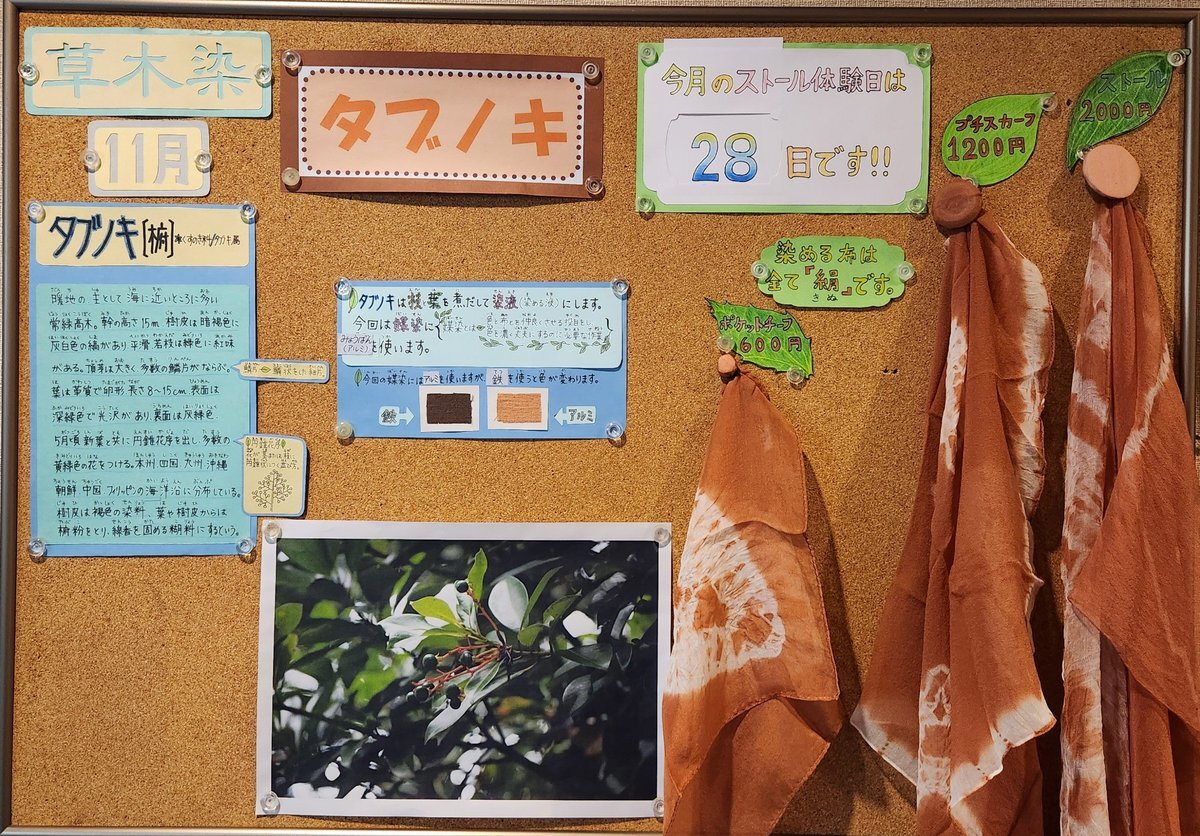 草木染
11月
タブノキ
今月のストール体験日は
28日です!!
プチスカーフ
1200円
ストール
2000円
染める布は
全て『絹』です。
きぬ
ポケットチーフ
600円
タブノキ[椨]
くすのき科/タブノキ属
暖地の主として海に近いところに多い
常緑高木。幹の高さ15m 樹皮は暗褐色に
灰白色の縞があり平滑 若枝は緑色に紅味
がある。頂芽は大きく多数の鱗片がならぶ。
葉は革質で卵形 長さ8〜15cm 表面は
深緑色で光沢があり、裏面は灰緑色
5月頃 新葉と共に円錐花序を出し、多数の
黄緑色の花をつける。本州 四国 九州 沖縄
朝鮮 中国 フィリッピンの海洋沿に分布している。
樹皮は褐色の染料、葉や樹皮からは
椨粉をとり、線香を固める糊料にするという。
タブノキは枝と葉を煮だして染液(染める液)にします。
今回は媒染に
媒染とは
色と布とを仲良くさせる役目をし、
みょうばん
(アルミ)
を使います。
今回の媒染にはアルミを使いますが、鉄を使うと色が変わります。
鉄
アルミ